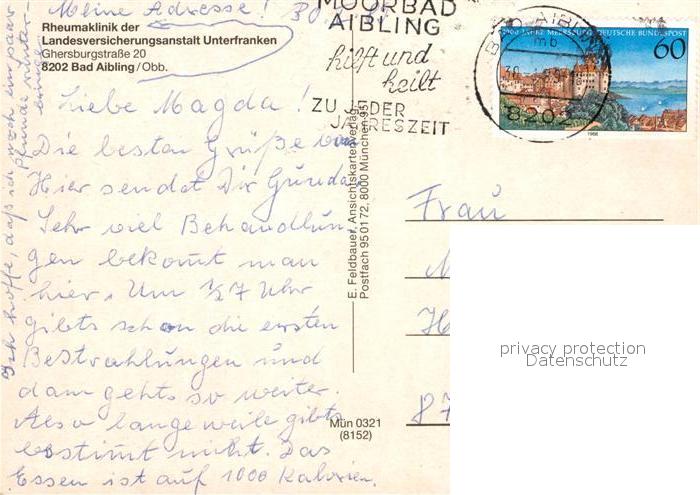 Meine Adresse!
Rheumaklinik der
Landesversicherungsanstalt Unterfranken
Ghersburgstraße 20
8202 Bad Aibling/Obb.
Liebe Magda!
Die besten Grüße von
Hier sendet Dir Gunda
Sehr viel Behandlun-
gen bekomt man
hier. Um ½7 Uhr
gibts schon die ersten
Bestrahlungen und
dann gehts so weiter.
Also langeweile gibts
bestimt nicht. Das
Essen ist auf 1000 Kalorien.
Ich hoffe, daß ich noch ein paar
Pfunde runter-
MOORBAD
AIBLING
hilft und
heilt
ZU JEDER
JAHRESZEIT
BAD AIBLING
mb
8202
1000 JAHRE MEERSBURG DEUTSCHE BUNDESPOST
60
1988
E. Feldbauer, Ansichtskartenverlag,
Postfach 950172, 8000 München 95
Mün 0321
(8152)
Frau
87
privacy protection
Datenschutz